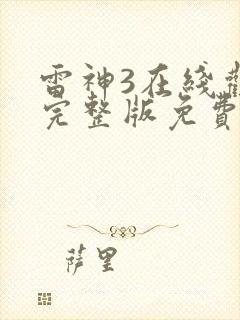 雷神3在线
完整版免費
萨里